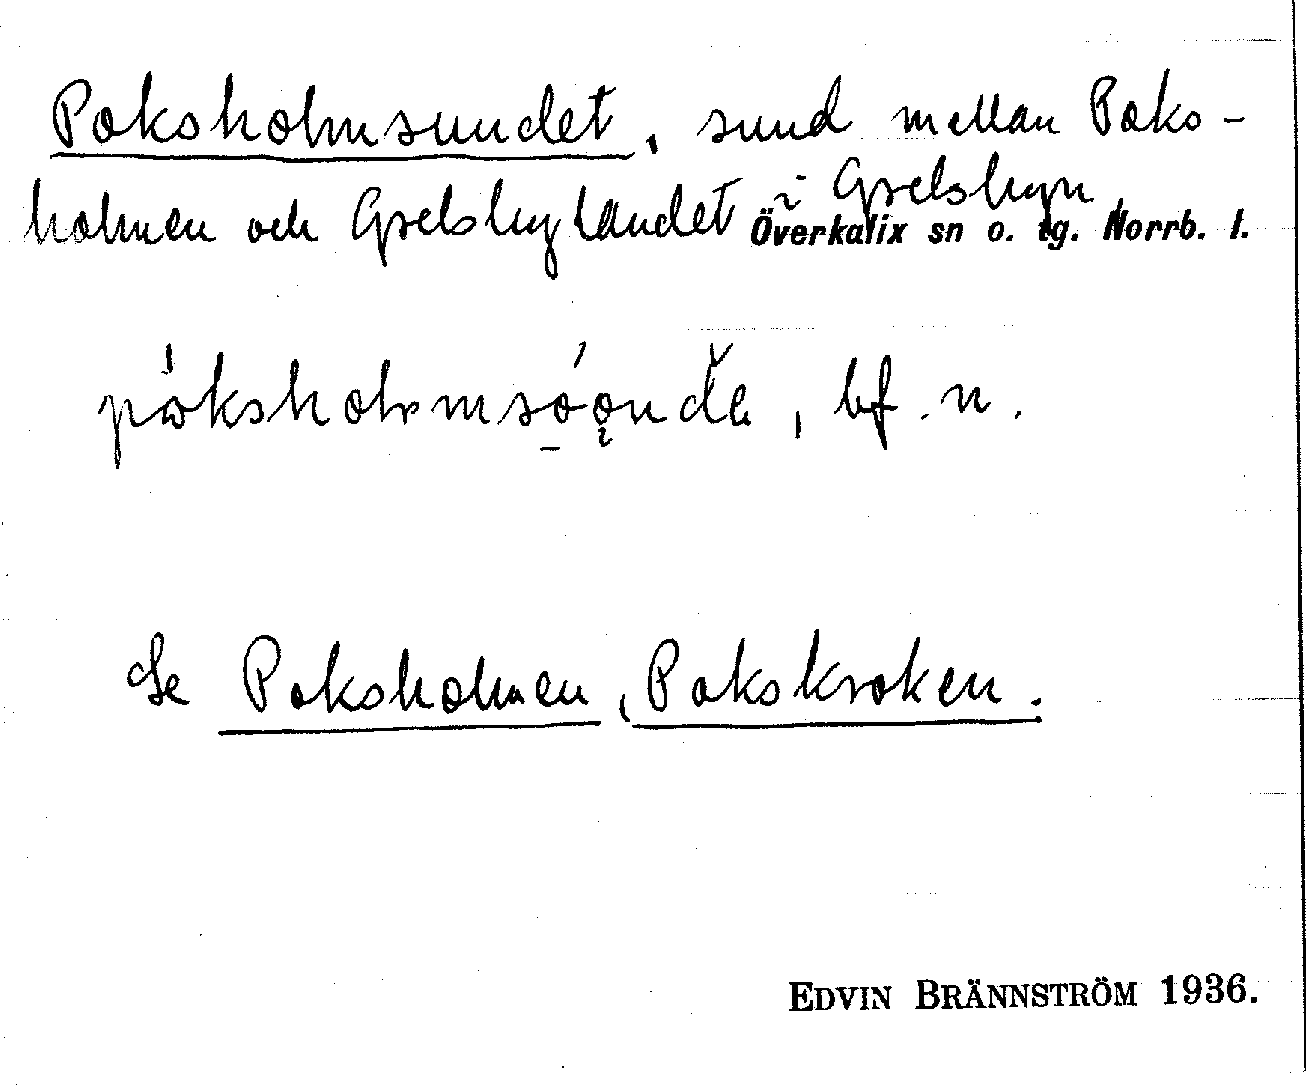 Poksholmsundet, sund mellan Poks-
holmen och Grelsbylandet i Grelsbyn,
Överkalix sn o. tg. Norrb. l.
Se Poksholmen, Pokskroken.
EDVIN BRÄNNSTRÖM 1936.